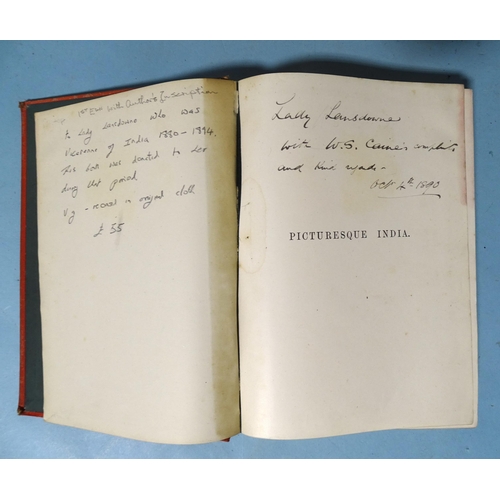 1st Edn with Author's Inscription
to Lady Lansdowne who was
Vicereine of India 1880-1894.
This book was donated to her
during that period
Vg - recased in original cloth
£55
Lady Lansdowne
with W.S. Caine's compliments
and kind regards -
Oct 4th 1890
PICTURESQUE INDIA.